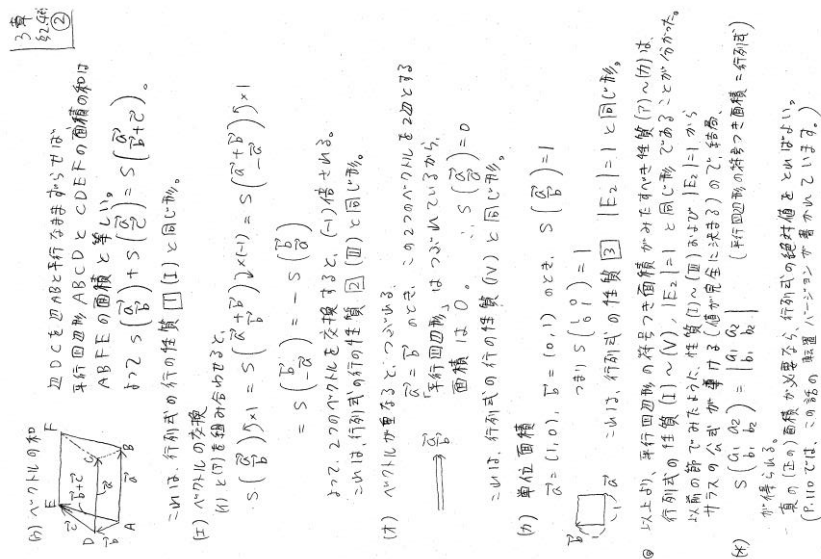 3章
§2.4節
②
(ウ) ベクトルの和
辺DCを辺ABと平行なままずらせば
平行四辺形ABCDとCDEFの面積の和は
ABFEの面積と等しい。
よって S(a⃗ b⃗) + S(a⃗ c⃗) = S(a⃗ b⃗+c⃗)。
E F D C A B a⃗ a⃗ b⃗ c⃗ c⃗ b⃗+c⃗
これは、行列式の行の性質 1 (I) と同じ形。
(エ) ベクトルの交換
(イ) と(ア)を組み合わせると、
S(a⃗ b⃗)×1 = S(a⃗+b⃗ b⃗)×(-1) = S(a⃗+b⃗ -a⃗)×1
= S(b⃗ -a⃗) = -S(b⃗ a⃗)
よって、2つのベクトルを交換すると、(-1)倍される。
これは、行列式の行の性質 2 (III) と同じ形。
(オ) ベクトルが重なると、つぶれる
a⃗ = b⃗ のとき、この2つのベクトルを2辺とする
「平行四辺形」はつぶれているから、
面積は0。 ∴ S(a⃗ a⃗) = 0
a⃗ b⃗
これは、行列式の行の性質 (IV) と同じ形。
(カ) 単位面積
a⃗ = (1,0), b⃗ = (0,1) のとき、 S(a⃗ b⃗) = 1
つまり S(1 0 0 1) = 1
b⃗ 1 a⃗
これは、行列式の性質 3 |E₂| = 1 と同じ形。
◎ 以上より、平行四辺形の符号つき面積がみたすべき性質 (ア)~(カ)は、
行列式の性質 (I)~(V), |E₂|=1 と同じ形であることが分かった。
以前の節でみたように、性質(I)~(III)および |E₂|=1 から
サラスの公式が導ける (値が完全に決まる) ので、結局、
(*) S(a₁ a₂ b₁ b₂) = |a₁ a₂ b₁ b₂| (平行四辺形の符号つき面積 = 行列式)
が得られる。
真の(正の)面積が必要なら、行列式の絶対値をとればよい。
(P.110では、この話の転置バージョンが書かれています。)